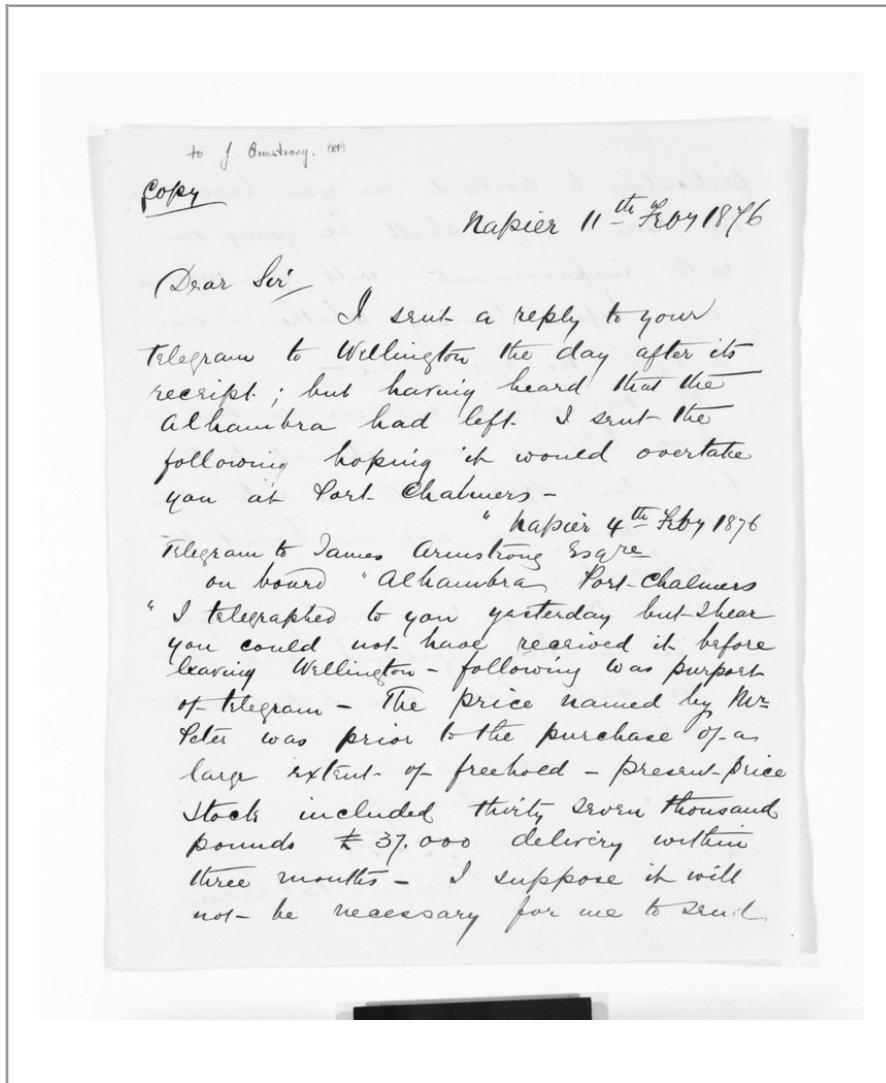 to J Armstrong. (RP)
Copy
Napier 11th Feby 1876
Dear Sir
I sent a reply to your
telegram to Wellington the day after its
receipt; but having heard that the
Alhambra had left. I sent the
following hoping it would overtake
you at Port Chalmers –
" Napier 4th Feby 1876
Telegram to James Armstrong Esqre
on board "Alhambra, Port-Chalmers
" I telegraphed to you yesterday but I hear
you could not have received it before
leaving Wellington – following was purport
of telegram – The price named by Mr
Peter was prior to the purchase of a
large extent of freehold – present price
stock included thirty seven thousand
pounds £ 37.000 delivery within
three months – I suppose it will
not be necessary for me to send